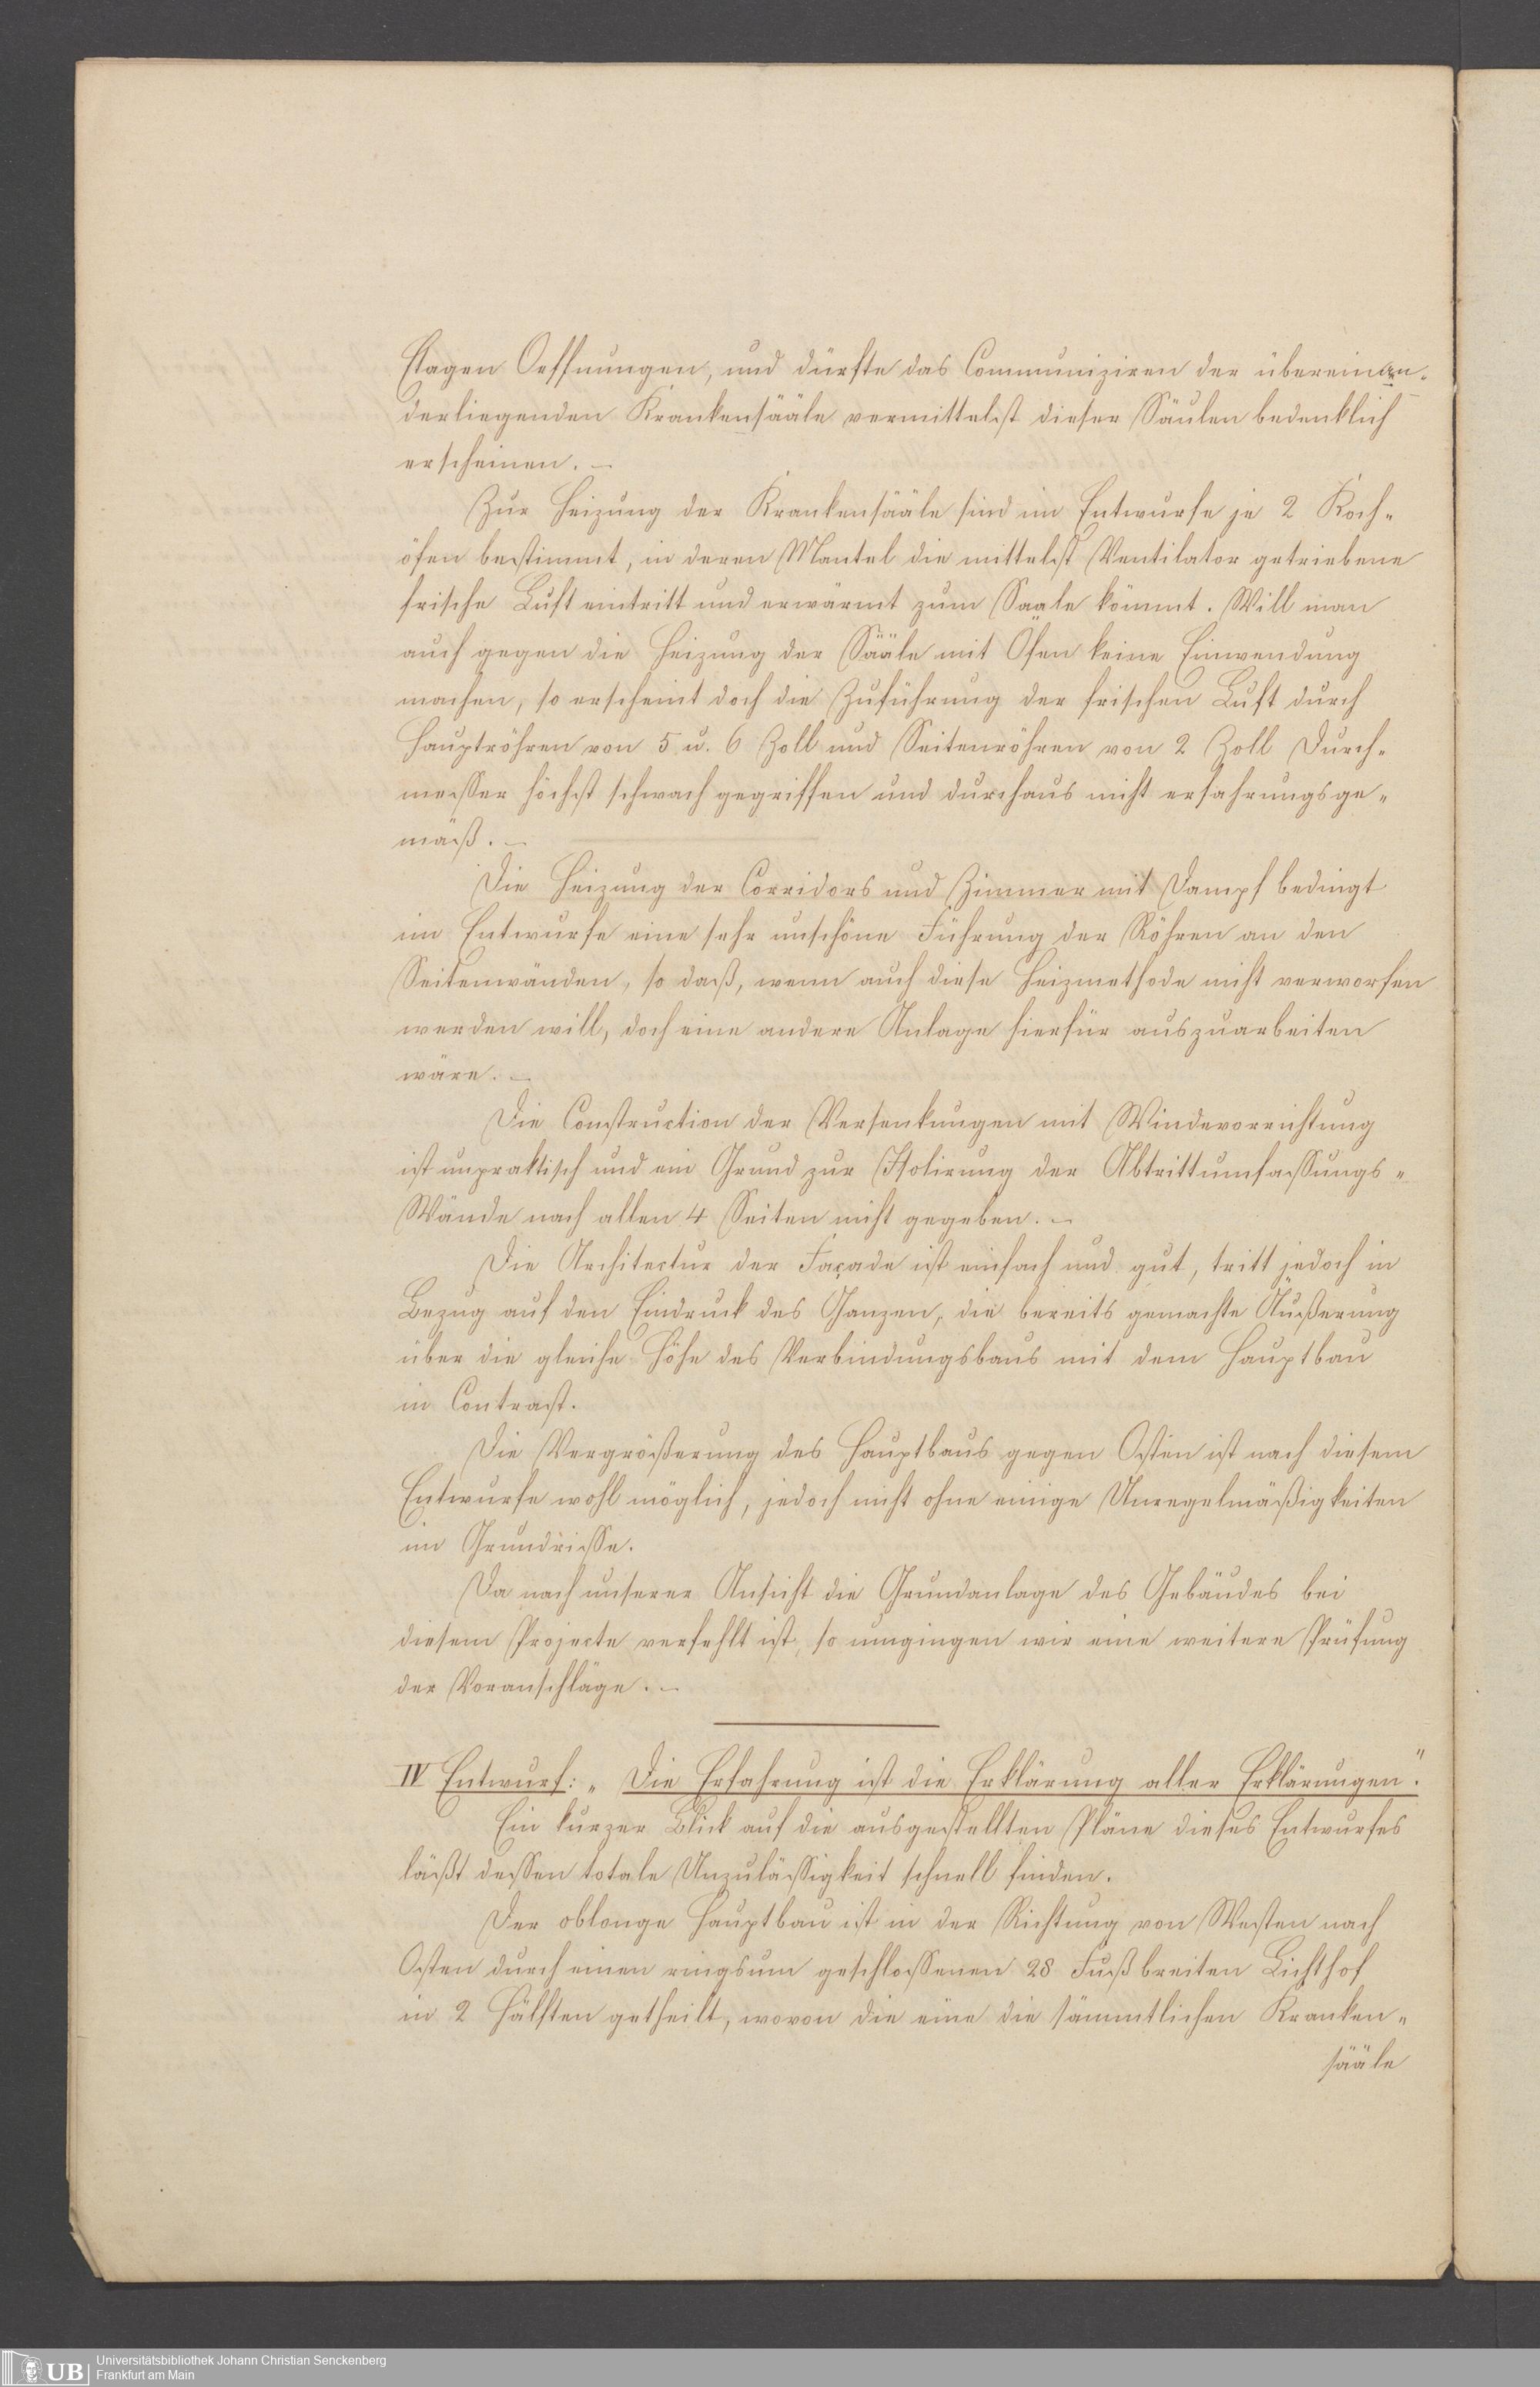 Etagen Oeffnungen, und dürfte das Communiziren der übereinan-
derliegenden Krankensääle vermittelst dieser Säulen bedenklich
erscheinen. –
Zur Heizung der Krankensääle sind im Entwurfe je 2 Koch-
öfen bestimmt, in deren Mantel die mittelst Ventilator getriebene
frische Luft eintritt und erwärmt zum Saale kömmt. Will man
auch gegen die Heizung der Sääle mit Öfen keine Einwendung
machen, so erscheint doch die Zuführung der frischen Luft durch
Hauptröhren von 5 u. 6 Zoll und Seitenröhren von 2 Zoll Durch-
messer höchst schwach gegriffen und durchaus nicht erfahrungsge-
mäß. –
Die Heizung der Corridors und Zimmer mit Dampf bedingt
im Entwurfe eine sehr unschöne Führung der Röhren an den
Seitenwänden, so daß, wenn auch diese Heizmethode nicht verworfen
werden will, doch eine andere Anlage hierfür auszuarbeiten
wäre. –
Die Construction der Versenkungen mit Windevorrichtung
ist unpraktisch und ein Grund zur Isolirung der Abtrittumfassungs-
Wände nach allen 4 Seiten nicht gegeben. –
Die Architectur der Façade ist einfach und gut, tritt jedoch in
Bezug auf den Eindruck des Ganzen, die bereits gemachte Äußerung
über die gleiche Höhe des Verbindungsbaus mit dem Hauptbau
in Contrast.
Die Vergrößerung des Hauptbaus gegen Osten ist nach diesem
Entwurfe wohl möglich, jedoch nicht ohne einige Unregelmäßigkeiten
im Grundrisse.
Da nach unserer Ansicht die Grundanlage des Gebäudes bei
diesem Projecte verfehlt ist, so umgingen wir eine weitere Prüfung
der Voranschläge. –
IV Entwurf: „Die Erfahrung ist die Erklärung aller Erklärungen".
Ein kurzer Blick auf die ausgestellten Pläne dieses Entwurfes
läßt dessen totale Unzulässigkeit schnell finden.
Der oblonge Hauptbau ist in der Richtung von Westen nach
Osten durch einen ringsum geschlossenen 28 Fuß breiten Lichthof
in 2 Hälften getheilt, wovon die eine die sämmtlichen Kranken-
sääle
UB
Universitätsbibliothek Johann Christian Senckenberg
Frankfurt am Main